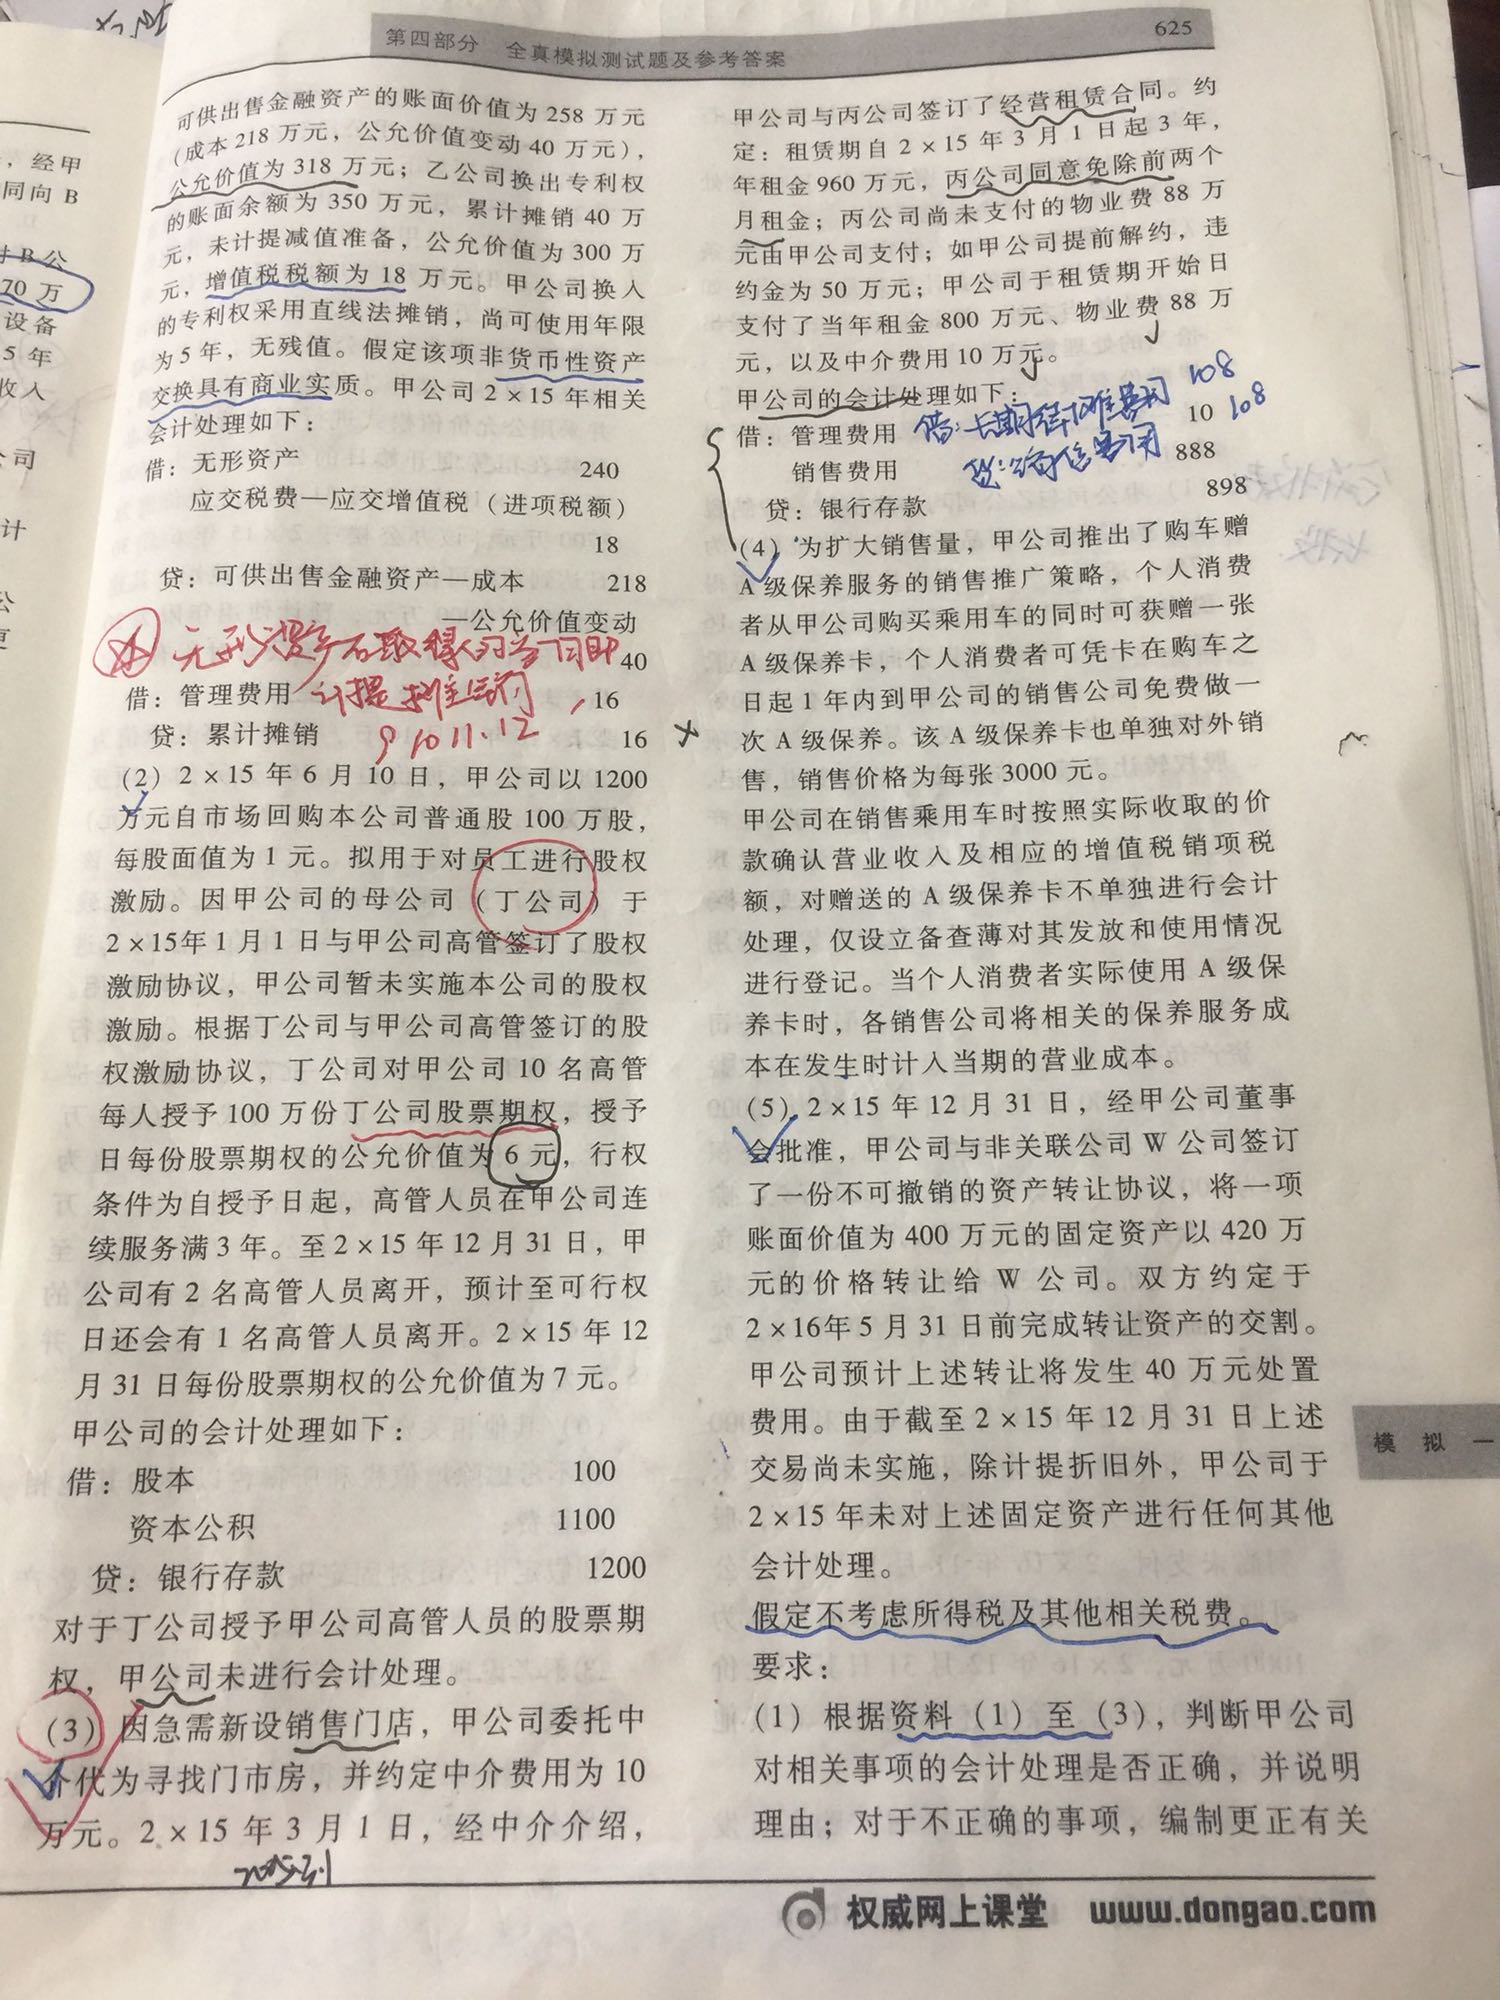 第四部分 全真模拟测试题及参考答案
625
，经甲
同向 B
B公
70万
设备
5年
收入
公司
计
公
可供出售金融资产的账面价值为 258 万元
（成本 218 万元，公允价值变动 40 万元），
公允价值为 318 万元；乙公司换出专利权
的账面余额为 350 万元，累计摊销 40 万
元，未计提减值准备，公允价值为 300 万
元，增值税税额为 18 万元。甲公司换入
的专利权采用直线法摊销，尚可使用年限
为 5 年，无残值。假定该项非货币性资产
交换具有商业实质。甲公司 2×15 年相关
会计处理如下：
借：无形资产 240
应交税费—应交增值税（进项税额）
18
贷：可供出售金融资产—成本 218
—公允价值变动
40
无形资产在取得的当月即
计提摊销
9 10 11.12
借：管理费用 16
贷：累计摊销 16
（2）2×15 年 6 月 10 日，甲公司以 1200
万元自市场回购本公司普通股 100 万股，
每股面值为 1 元。拟用于对员工进行股权
激励。因甲公司的母公司（丁公司）于
2×15年 1 月 1 日与甲公司高管签订了股权
激励协议，甲公司暂未实施本公司的股权
激励。根据丁公司与甲公司高管签订的股
权激励协议，丁公司对甲公司 10 名高管
每人授予 100 万份丁公司股票期权，授予
日每份股票期权的公允价值为 6 元，行权
条件为自授予日起，高管人员在甲公司连
续服务满 3 年。至 2×15 年 12 月 31 日，甲
公司有 2 名高管人员离开，预计至可行权
日还会有 1 名高管人员离开。2×15 年 12
月 31 日每份股票期权的公允价值为 7 元。
甲公司的会计处理如下：
借：股本 100
资本公积 1100
贷：银行存款 1200
对于丁公司授予甲公司高管人员的股票期
权，甲公司未进行会计处理。
（3）因急需新设销售门店，甲公司委托中
介代为寻找门市房，并约定中介费用为 10
万元。2×15 年 3 月 1 日，经中介介绍，
甲公司与丙公司签订了经营租赁合同。约
定：租赁期自 2×15 年 3 月 1 日起 3 年，
年租金 960 万元，丙公司同意免除前两个
月租金；丙公司尚未支付的物业费 88 万
元由甲公司支付；如甲公司提前解约，违
约金为 50 万元；甲公司于租赁期开始日
支付了当年租金 800 万元、物业费 88 万
元，以及中介费用 10 万元。
甲公司的会计处理如下：
借：管理费用 10
销售费用 888
贷：银行存款 898
借：长期待摊费用 108
贷：销售费用 108
（4）为扩大销售量，甲公司推出了购车赠
A 级保养服务的销售推广策略，个人消费
者从甲公司购买乘用车的同时可获赠一张
A 级保养卡，个人消费者可凭卡在购车之
日起 1 年内到甲公司的销售公司免费做一
次 A 级保养。该 A 级保养卡也单独对外销
售，销售价格为每张 3000 元。
甲公司在销售乘用车时按照实际收取的价
款确认营业收入及相应的增值税销项税
额，对赠送的 A 级保养卡不单独进行会计
处理，仅设立备查薄对其发放和使用情况
进行登记。当个人消费者实际使用 A 级保
养卡时，各销售公司将相关的保养服务成
本在发生时计入当期的营业成本。
（5）2×15 年 12 月 31 日，经甲公司董事
会批准，甲公司与非关联公司 W 公司签订
了一份不可撤销的资产转让协议，将一项
账面价值为 400 万元的固定资产以 420 万
元的价格转让给 W 公司。双方约定于
2×16年 5 月 31 日前完成转让资产的交割。
甲公司预计上述转让将发生 40 万元处置
费用。由于截至 2×15 年 12 月 31 日上述
交易尚未实施，除计提折旧外，甲公司于
2×15 年未对上述固定资产进行任何其他
会计处理。
假定不考虑所得税及其他相关税费。
要求：
（1）根据资料（1）至（3），判断甲公司
对相关事项的会计处理是否正确，并说明
理由；对于不正确的事项，编制更正有关
模拟一
权威网上课堂 www.dongao.com